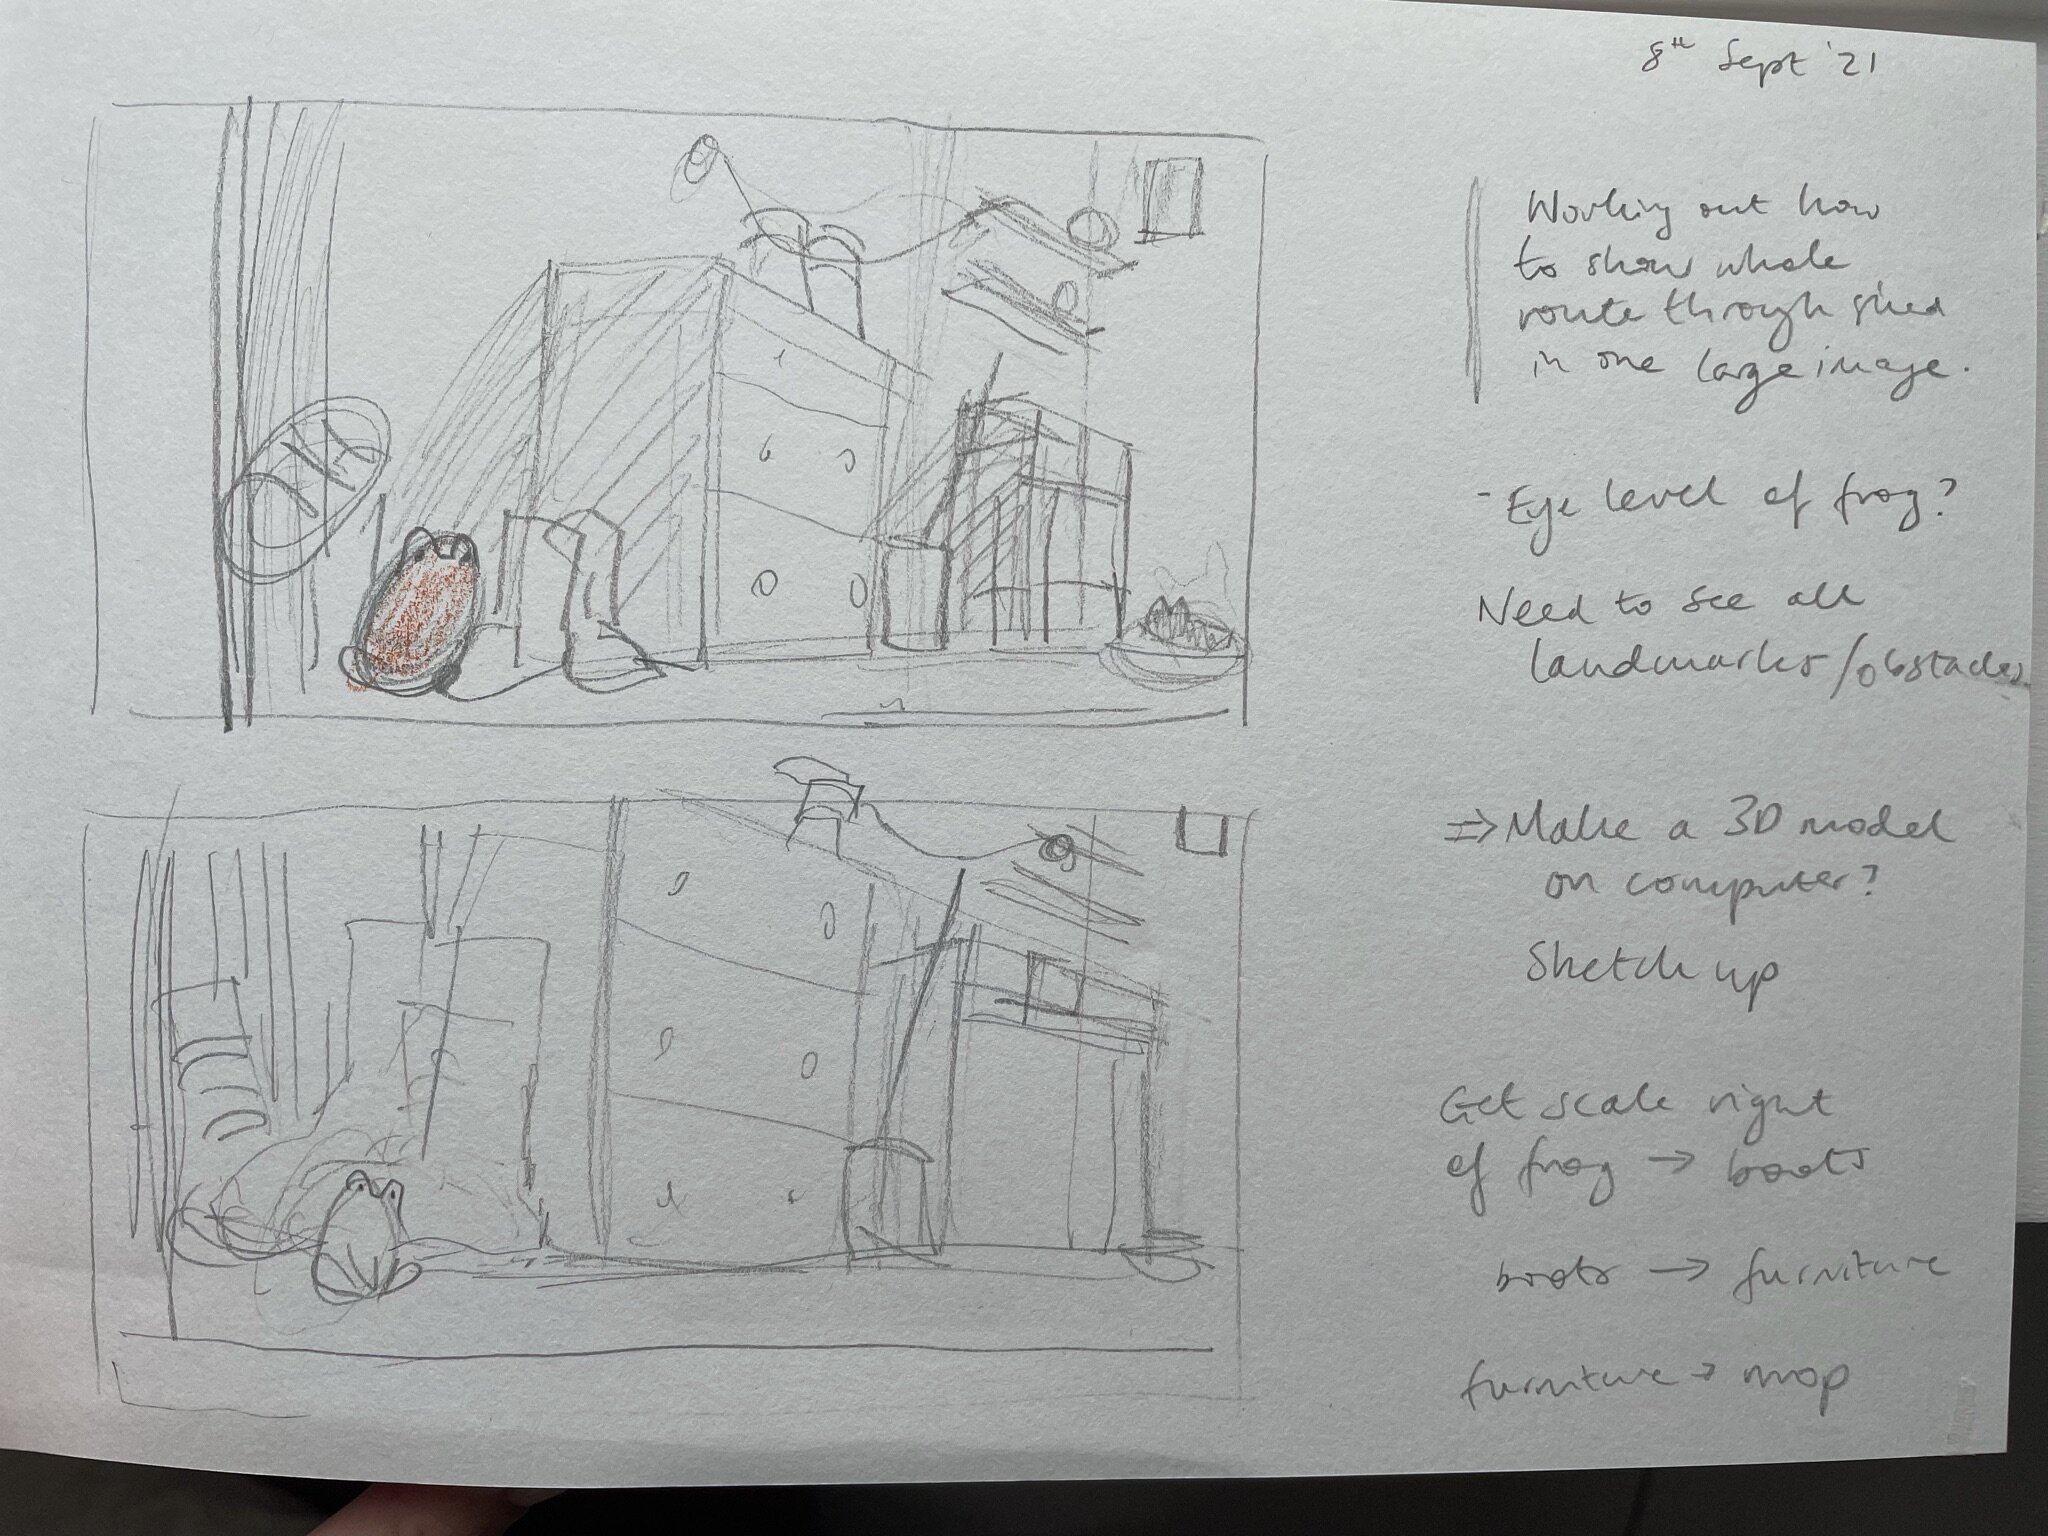 8th Sept '21
Working out how
to show whole
route through shed
in one large image.
- Eye level of frog?
Need to see all
landmarks/obstacles
⇒ Make a 3D model
on computer?
Sketch up
Get scale right
of frog → boots
boots → furniture
furniture → mop